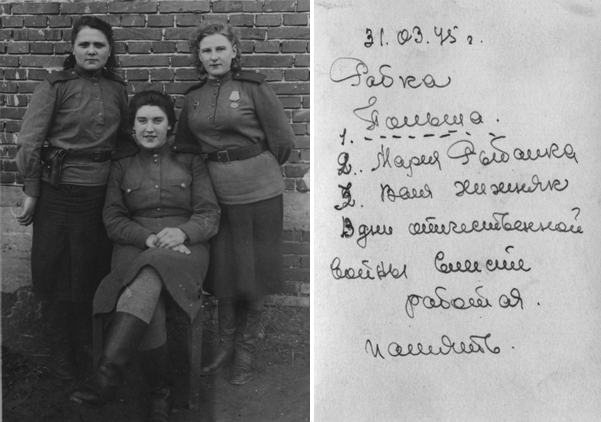 31.03.45 г.
Рабка
Польша.
1.
2. Мария Рыбалка
3. Валя Хижняк
В дни отечественной
войны вместе
работая.
Память.